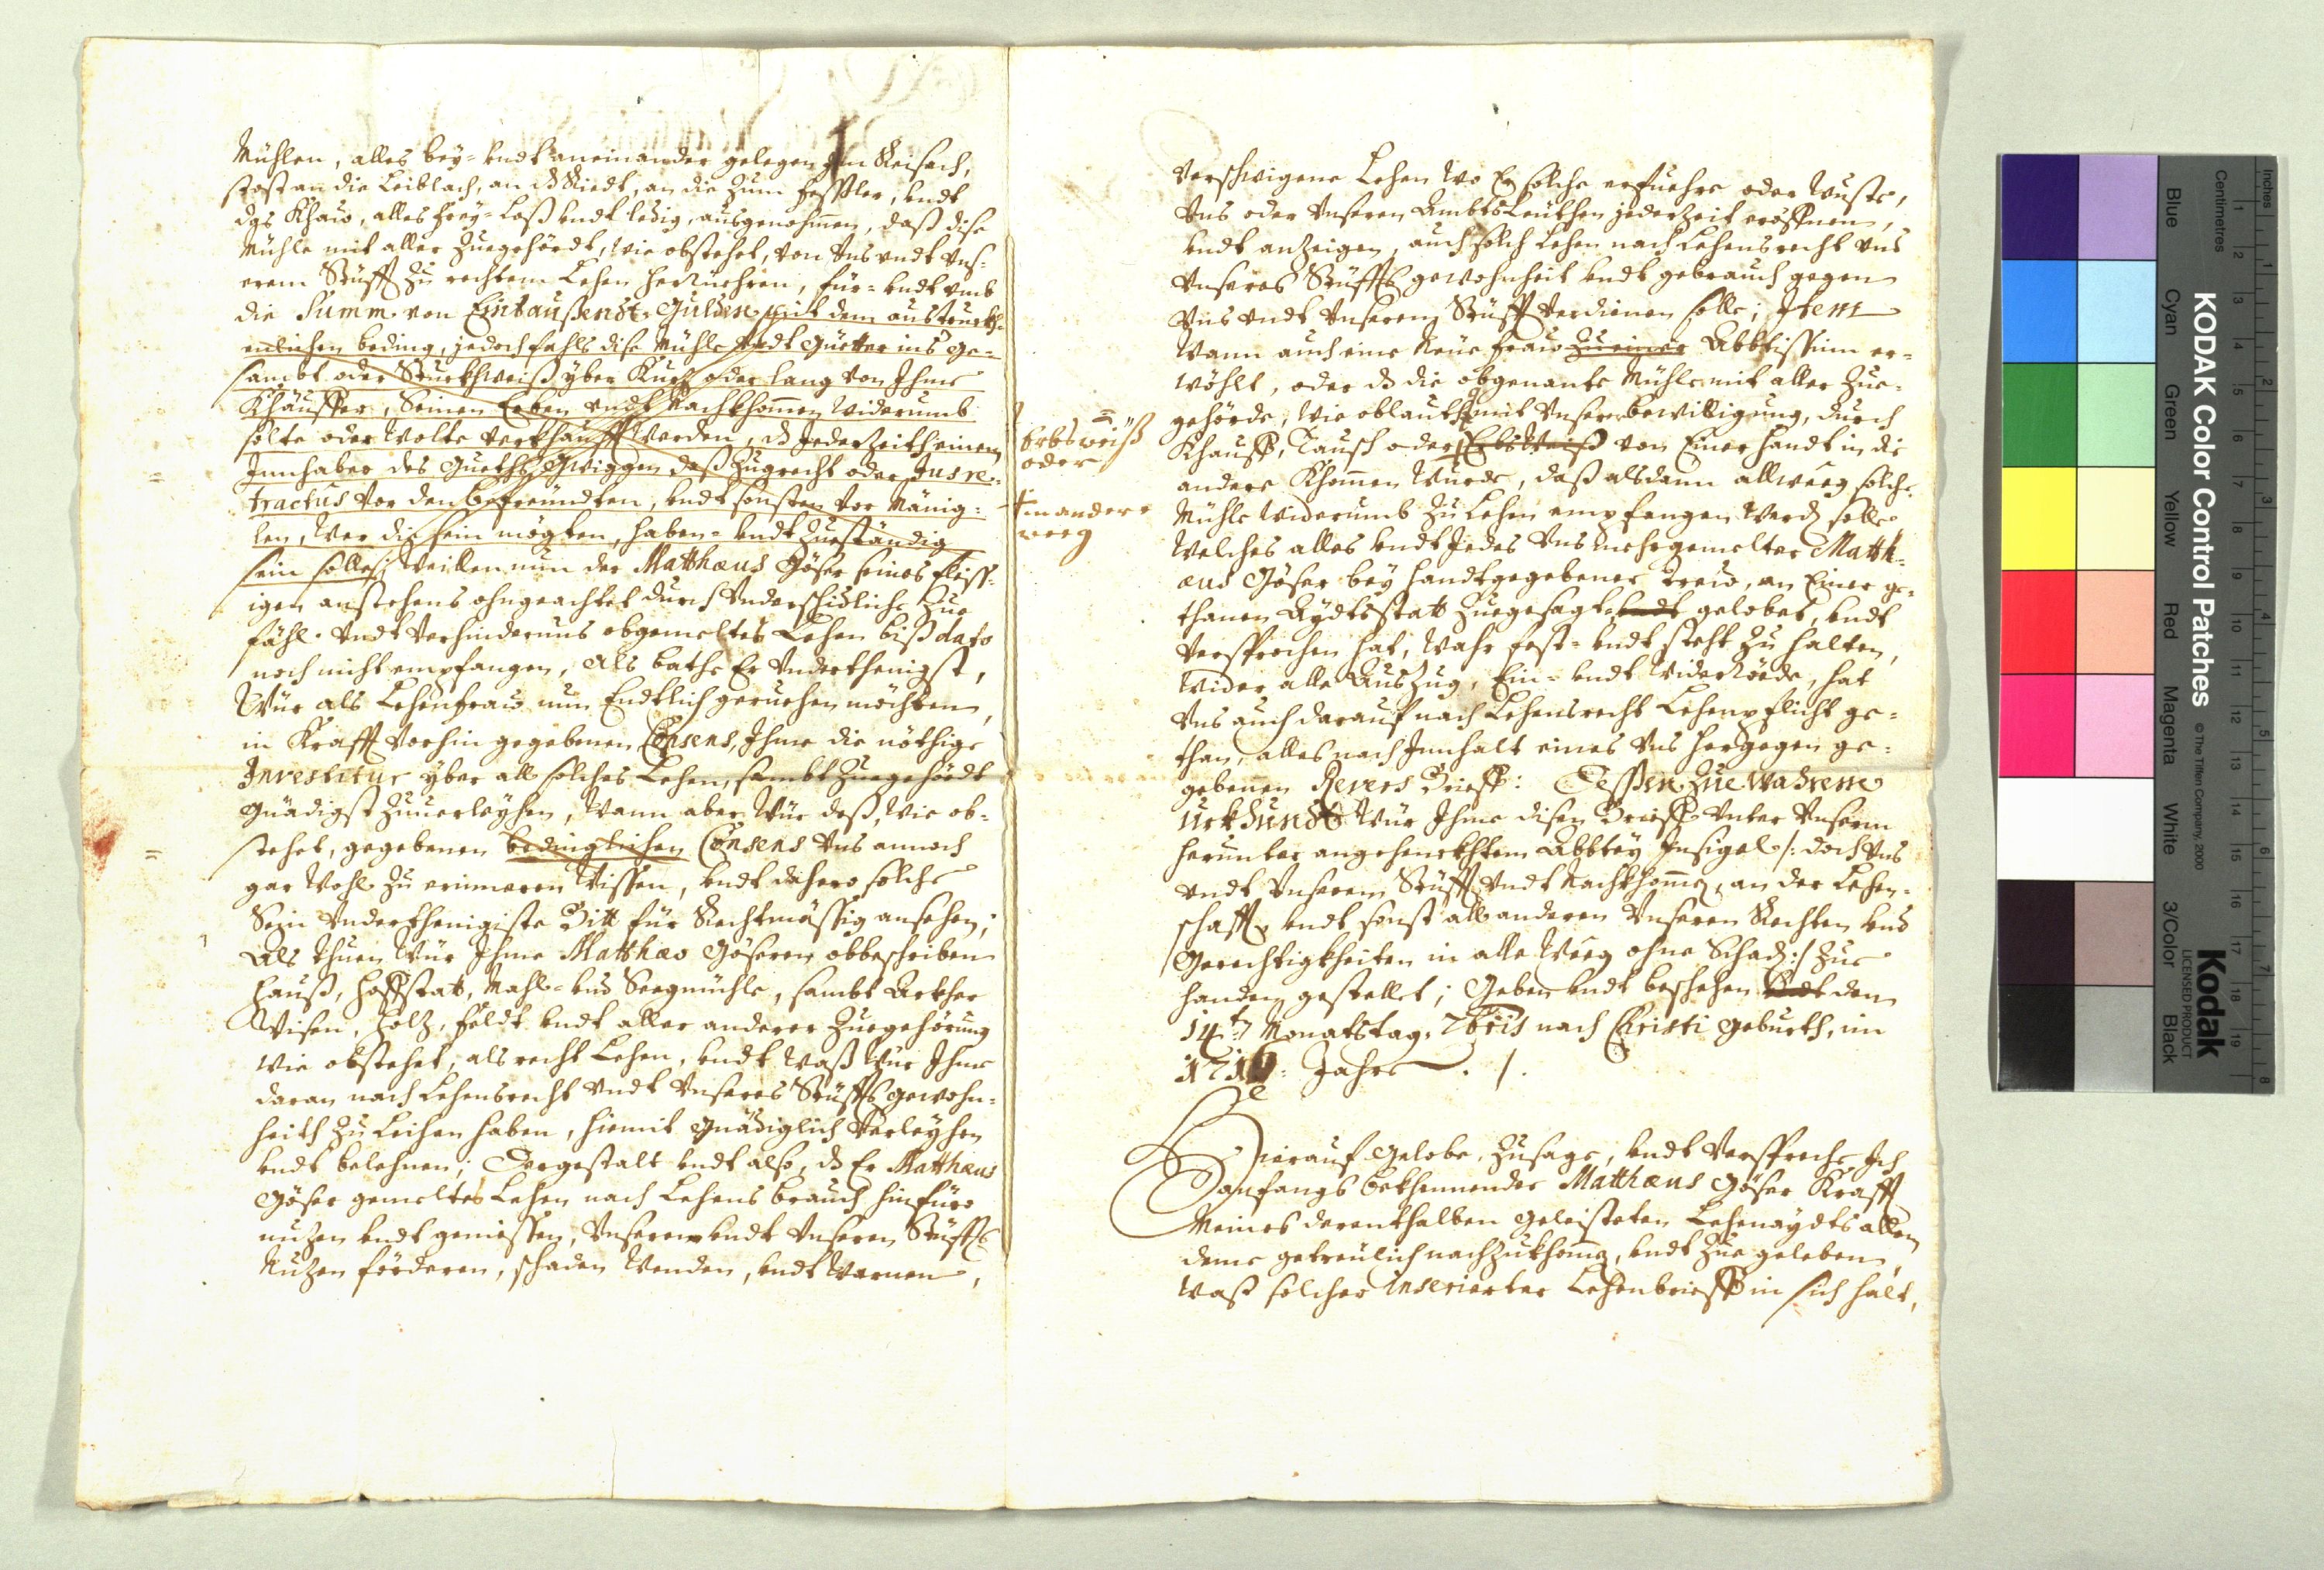 Mühlen, alles bey- undt aneinander gelegen zu Reisach,
stost an die Leiblach, an dz Riedt, an die zum Hessler, undt
das Khaw, alles frey- loß undt ledig, ausgenohmmen, daß dise
Mühle mit aller Zuegehördt, wie obstehet, von Uns undt Uns-
erem Stüfft zu rechtem Lehen herrüehren, für- undt umb
die Summ. von Eintaußendt. Gulden, mit dem austruckh-
entlichen beding, jedoch fahls dise Mühle undt Güetter ins ge-
sambt oder Stuckhweiß yber Kurtz oder lang von Ihme
Khäuffer, Seinen Erben undt Nachkhommen widerumb
solte oder wolte verkhaufft werden, dz Jederzeith einem
Innhaber des Gueths Gwiggen daß Zugrecht oder Jus re-
tractus vor den befreündten, undt sonsten vor Mänig-
len, wer die sein mögten, haben- undt Zueständig
sein solle; Weillen nun der Matthæus Göser seines fleiss-
igen anstehens ohngeachtet durch Underschidliche Zue
fähl. undt Verhindernus obgemeltes Lehen biß dato
noch nicht empfangen, Als bathe Er Underthenigst,
Wür als Lehenfraw nun Endtlich geruehen möchten,
in Krafft vorhin gegebenen Consens, Ihme die nöthige
Investitur yber all solches Lehen, sambt Zuegehördt
Gnädigst Zuuerleyhen, Wann aber Wür deß, wie ob-
stehet, gegebenen bedinglichen Consens Uns annoch
gar wohl zu erinneren wissen, undt dahero solche
Sein Underthenigiste Bitt für Rechtmässig ansehen;
Als thuen Wür Ihme Matthæo Göseren obbeschriben
Hauß, Hoffstatt, Mahl- und Seegmühle, sambt Ackher
Wisen, Holz, Feldt undt aller anderer Zuegehörung
wie obstehet, als recht Lehen, undt waß Wür Ihme
daran nach Lehensrecht undt Unseres Stüffts gewohn-
heith zu Leihen haben, hiemit Gnädiglich Verleyhen
undt belehnen; Dergestalt undt also, dz Er Matthæus
Göser gemeltes Lehen nach Lehens brauch hinfüro
nuzen undt geniessen, Unseren undt Unseren Stüffts
Nuzen förderen, schaden Wenden, undt Warnen,
=
Erbsweiß
oder
+ in andere
weeg
Verschwigene Lehen wo Er solche erfuehre oder Wuste,
Uns oder Unseren Ambtsleüthen jederzeit eröffnen,
undt anzeigen, auch solch Lehen nach Lehensrecht uns
Unseres Stüffts gewohnheit undt gebrauch gegen
Uns undt Unserem Stüfft Verdienen solle; Item
Wann auch eine Neüe fraw zu einer Abbtissinn er-
wöhlt, oder dz die obgenante Mühle mit aller Zue-
gehörde, wie oblauth, mit Unserer bewilligung, durch
Khauff, Tausch oder Erbsweiß von Einer handt in die
andere Khommen wurde, daß alsdann allweeg solche
Mühle widerumb zu Lehen empfangen werd solle
Welches alles undt Jedes Uns mehrgemelter Matth-
æus Göser bey handtgegebener Trew, an Einer ge-
thanen Aydtsstatt zuegesagt, undt gelobet, undt
Versprochen hat, wahr fest- undt steht zu halten,
Wider alle Auszug, Ein- undt Widerröede, hat
Uns auch darauf nach Lehensrecht Lehenpflicht ge-
than, alles nach Innhalt eines Uns hergegen ge-
gebenen Revers Brieff: Dessen Zue Wahrem
Urkhundt Wür Ihme disen Brieff unter Unserm
herunter angehenckhtem Abbtey Insigel /: doch Uns
undt Unserem Stüfft undt Nachkhommen, an der Lehen-
schafft, undt sonst all anderen Unseren Rechten und
Gerechtigkheiten in alle Weeg ohne Schad: / Zue
handen gestellet; Geben undt beschehen undt den
14t. Monatstag 7bris nach Christi Geburth, im
1716: Jahre. /.
Hierauf gelobe, Zusage, undt Verspreche Ich
anfangs bekhennender Matthæus Göser Krafft
Meines derenthalben geleisteten Lehenaydts allem
deme getreülich nachzukhomen, undt Zue geleben,
Waß solcher inserierter Lehenbrieff in sich halt,